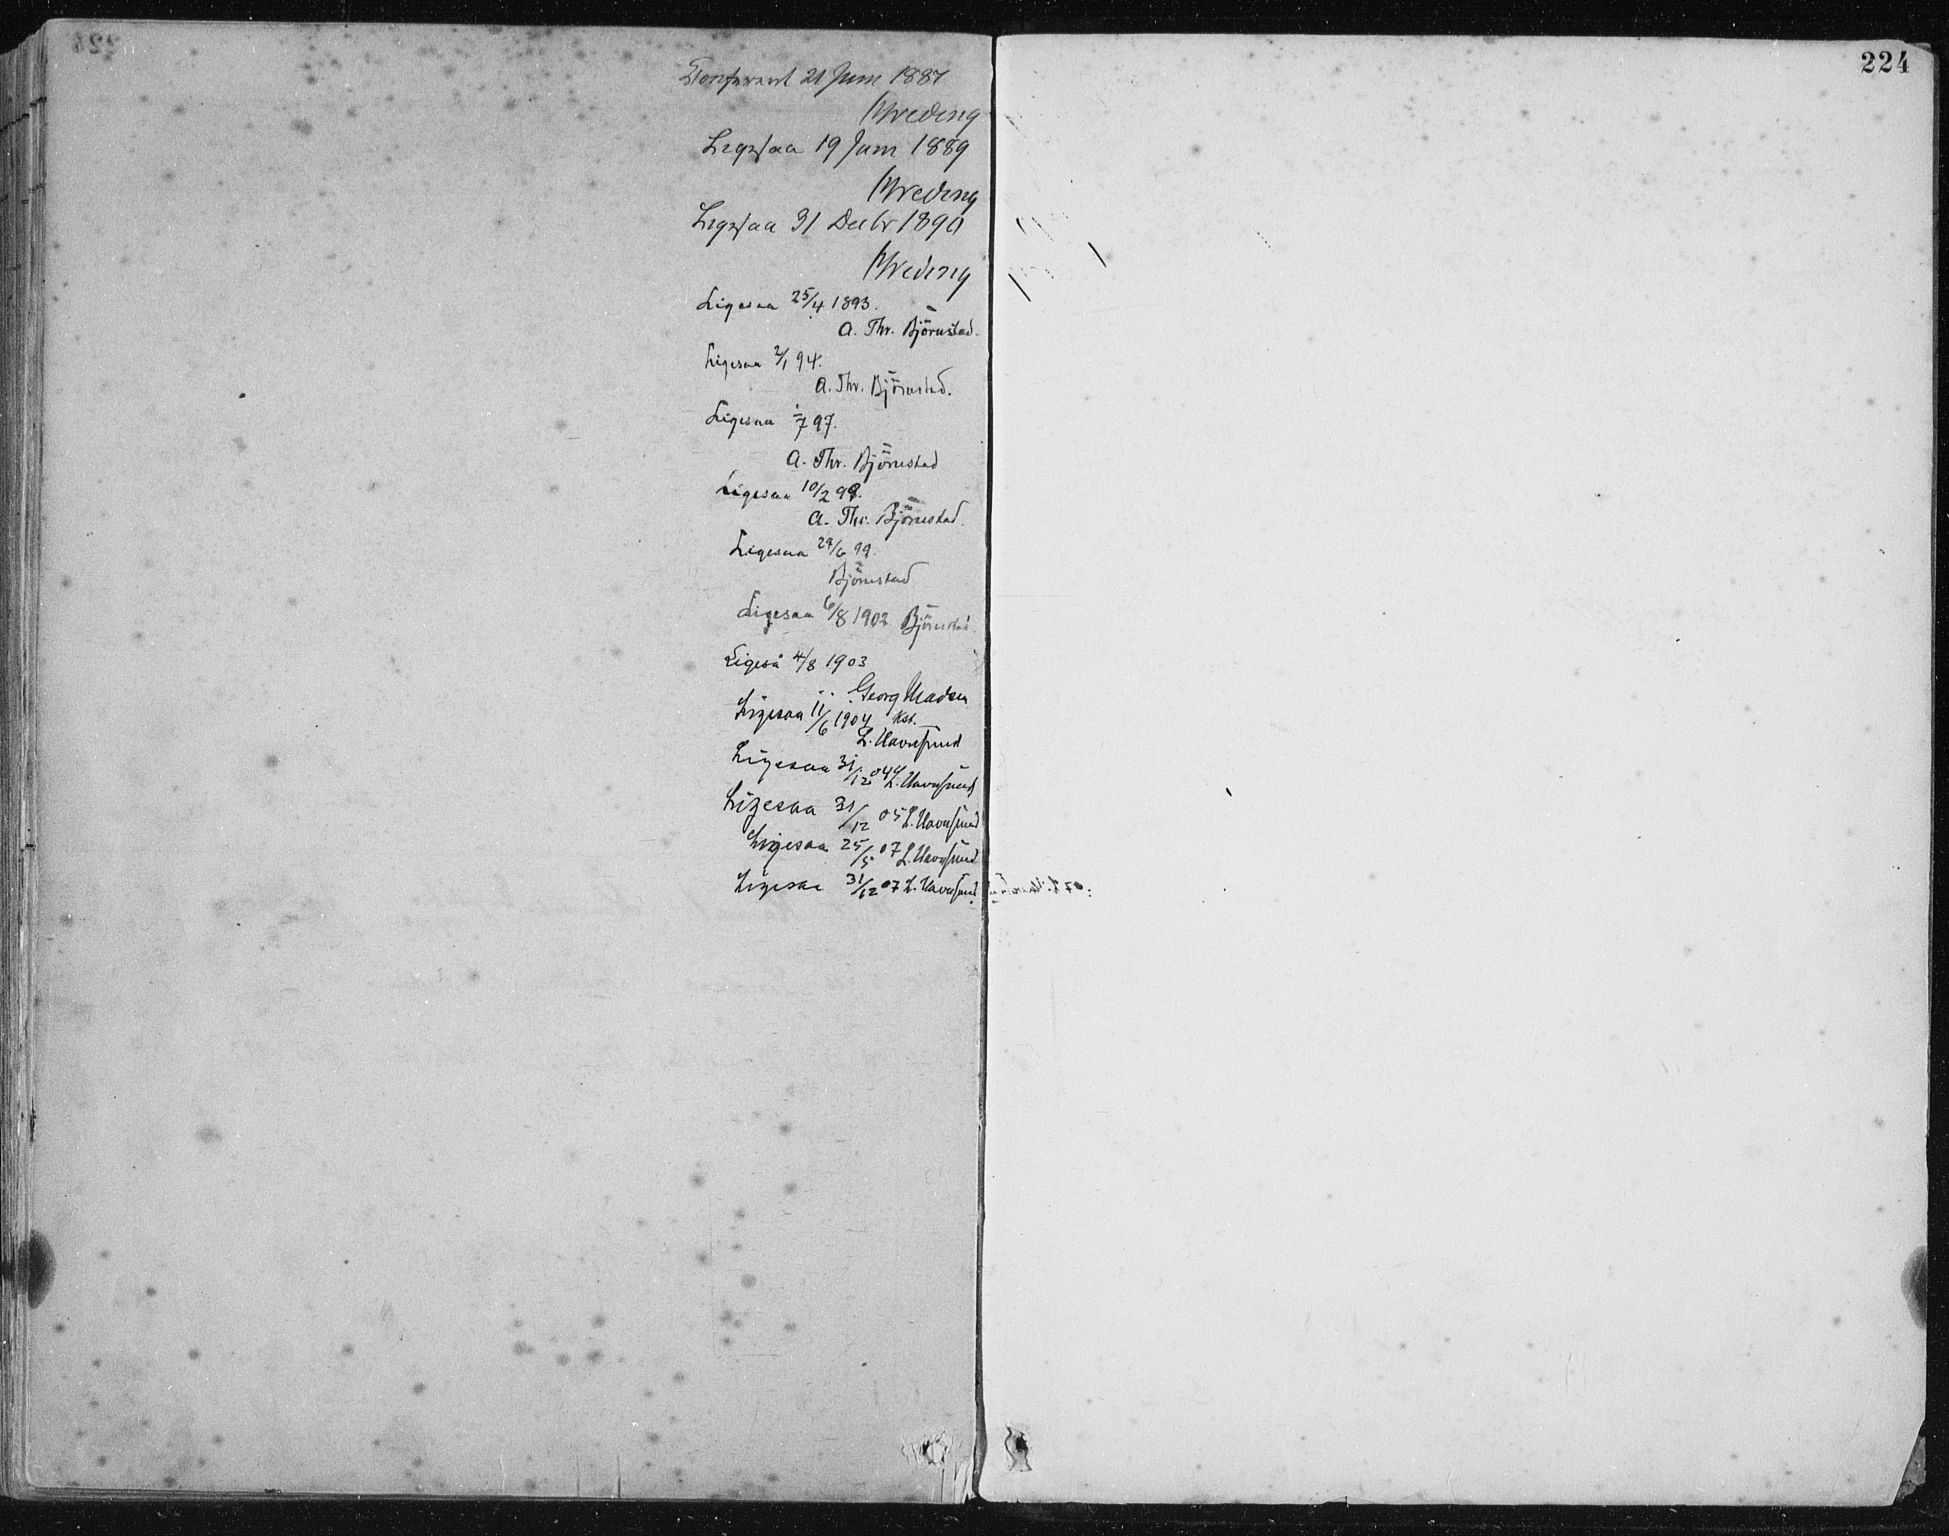 224
Confereret 21 Juni 1887
Wreding
Ligesaa 19 Juni 1889
Wreding
Ligesaa 31 Decbr 1890
Wreding
Ligesaa 25/4 1893.
A. Thr. Björnstad.
Ligesaa 2/1 94.
A. Thr. Björnstad.
Ligesaa 1/7 97.
A. Thr. Björnstad
Ligesaa 10/2 98.
A. Thr. Björnstad.
Ligesaa 29/6 99.
Björnstad
Ligesaa 6/8 1902 Björnstad.
Ligeså 4/8 1903
Georg Madsen
Kst.
Ligesaa 11/6 1904
L. Uavnsund
Ligesaa 31/12 04 L. Uavnsund
Ligesaa 31/12 05 L. Uavnsund
Ligesaa 25/5 07 L. Uavnsund
Ligesaa 31/12 07 L. Uavnsund.